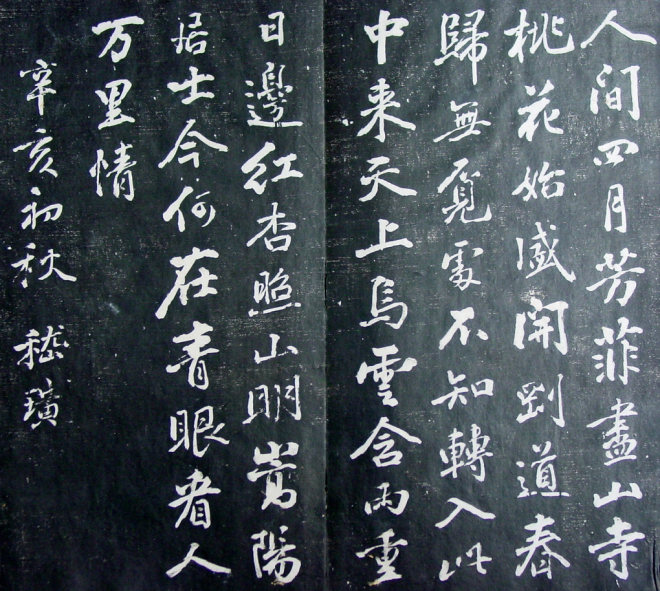 人間四月芳菲盡山寺
桃花始盛開劉道春
歸無覓處不知轉入此
中来天上烏雲含雨重
日邊紅杏照山明嵩陽
居士今何在青眼看人
万里情
辛亥初秋 嵇璜